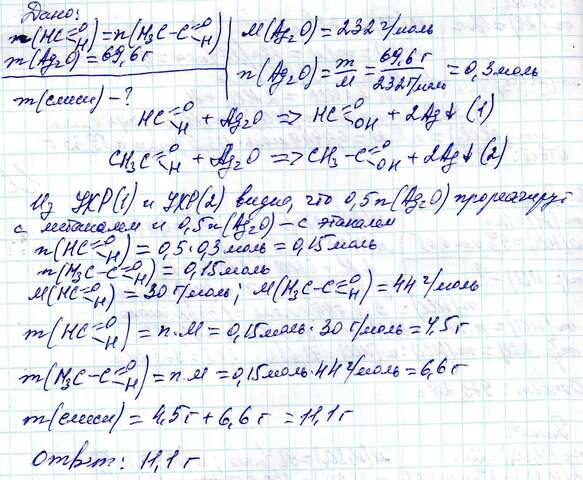 Дано:
n(HC=O H)=n(H₃C-C=O H)
m(Ag₂O)=69,6г
m(смеси)-?
M(Ag₂O)=232г/моль
n(Ag₂O)=m/M=69,6г/232г/моль=0,3моль
HC=O H + Ag₂O => HC=O OH + 2Ag↓ (1)
CH₃C=O H + Ag₂O => CH₃-C=O OH + 2Ag↓ (2)
Из УХР(1) и УХР(2) видно, что 0,5n(Ag₂O) прореагирует
с метаналем и 0,5n(Ag₂O)-с этаналем
n(HC=O H)=0,5·0,3моль=0,15моль
n(H₃C-C=O H)=0,15моль
M(HC=O H)=30г/моль; M(H₃C-C=O H)=44г/моль
m(HC=O H)=n·M=0,15моль·30г/моль=4,5г
m(H₃C-C=O H)=n·M=0,15моль·44г/моль=6,6г
m(смеси)=4,5г+6,6г=11,1г
Ответ: 11,1г